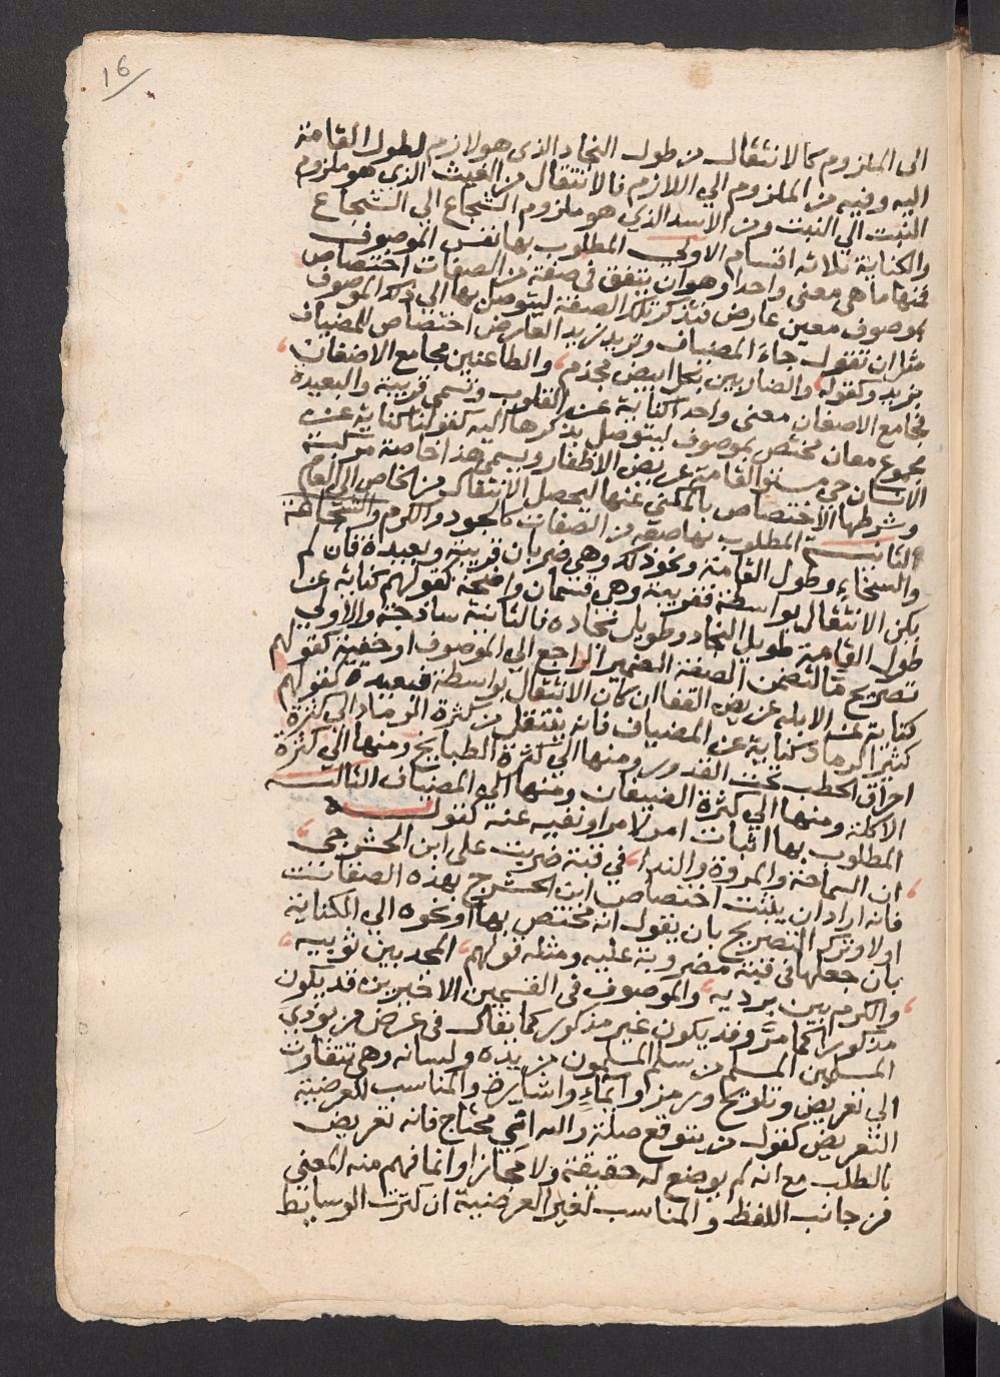 16
الى الملزوم كالانتقال من طول النجاد الذى هو لازم لطول القامة
اليه وفيه من الملزوم الي اللازم فالانتقال من الغيث الذي هو ملزوم
النبت الي النبت ومن الاسد الذي هو ملزوم الشجاع الي الشجاع
والكناية ثلاثة اقسام الاولي المطلوب بها نفس الموصوف
فمنها ما هي معنى واحد وهو ان يتفق في صفة من الصفات اختصاص
بموصوف معين عارض فتذكر تلك الصفة ليتوصل بها الي ذلك الموصوف
مثل ان تقول جاء المضياف وتريد زيد العارض اختصاص المضياف
بزيد وكقوله والضاربين بكل ابيض مخذم والطاعنين مجامع الاضغان
فمجامع الاضغان معنى واحد كناية عن القلوب وتسمى قريبة والبعيدة
مجموع معان مختص بموصوف ليتوصل بذكرها اليه كقولنا كناية عن
الانسان حي مستو القامة عريض الاظفار ويسمى هذا خاصة مركبة
وشرطها الاختصاص بالمكني عنها ليحصل الانتقال من الخاص الي العام
الثانية المطلوب بها صفة من الصفات كالجود والكرم والشجاعة
والسخاء وطول القامة ونحو ذلك وهي ضربان قريبة وبعيدة فان لم
يكن الانتقال بواسطة فقريبة وهي قسمان واضحة كقولهم كناية عن
طول القامة طويل النجاد وطويل نجاده فالثانية ساذجة والاولي
تصريح ما لتضمن الصفة الضمير الراجع الي الموصوف او خفية كقولهم
كناية عن الابله عريض القفا ان كان الانتقال بواسطة فبعيدة كقولهم
كثير الرماد كناية عن المضياف فانه ينتقل من كثرة الرماد الي كثرة
احراق الحطب تحت القدور ومنها الي كثرة الطبايخ ومنها الي كثرة
الاكلة ومنها الي كثرة الضيفان ومنها الي المضياف الثالث
المطلوب بها اثبات امر لامر او نفيه عنه كقوله
ان السماحة والمروة والندا في قبة ضربت على ابن الحشرج
فانه اراد ان يثبت اختصاص ابن الحشرج بهذه الصفات
اولا وترك التصريح بان يقول انه مختص بها او نحوه الي الكناية
بان جعلها في قبة مضروبة عليه ومثله قولهم المجد بين ثوبيه
والكرم بين برديه والموصوف في القسمين الاخيرين قد يكون
مذكورا كما مر وقد يكون غير مذكور كما يقال في عرض من يؤذي
المسلمين المسلم من سلم المسلمون من يده ولسانه وهي تتفاوت
الي تعريض وتلويح ورمز وايماء واشارة والمناسب للعرضية
التعريض كقول من يتوقع صلة والله اني محتاج فانه تعريض
بالطلب مع انه لم يوضع له حقيقة ولا مجازا وانما فهم منه المعني
من جانب اللفظ والمناسب لغير العرضية ان كثرت الوسايط